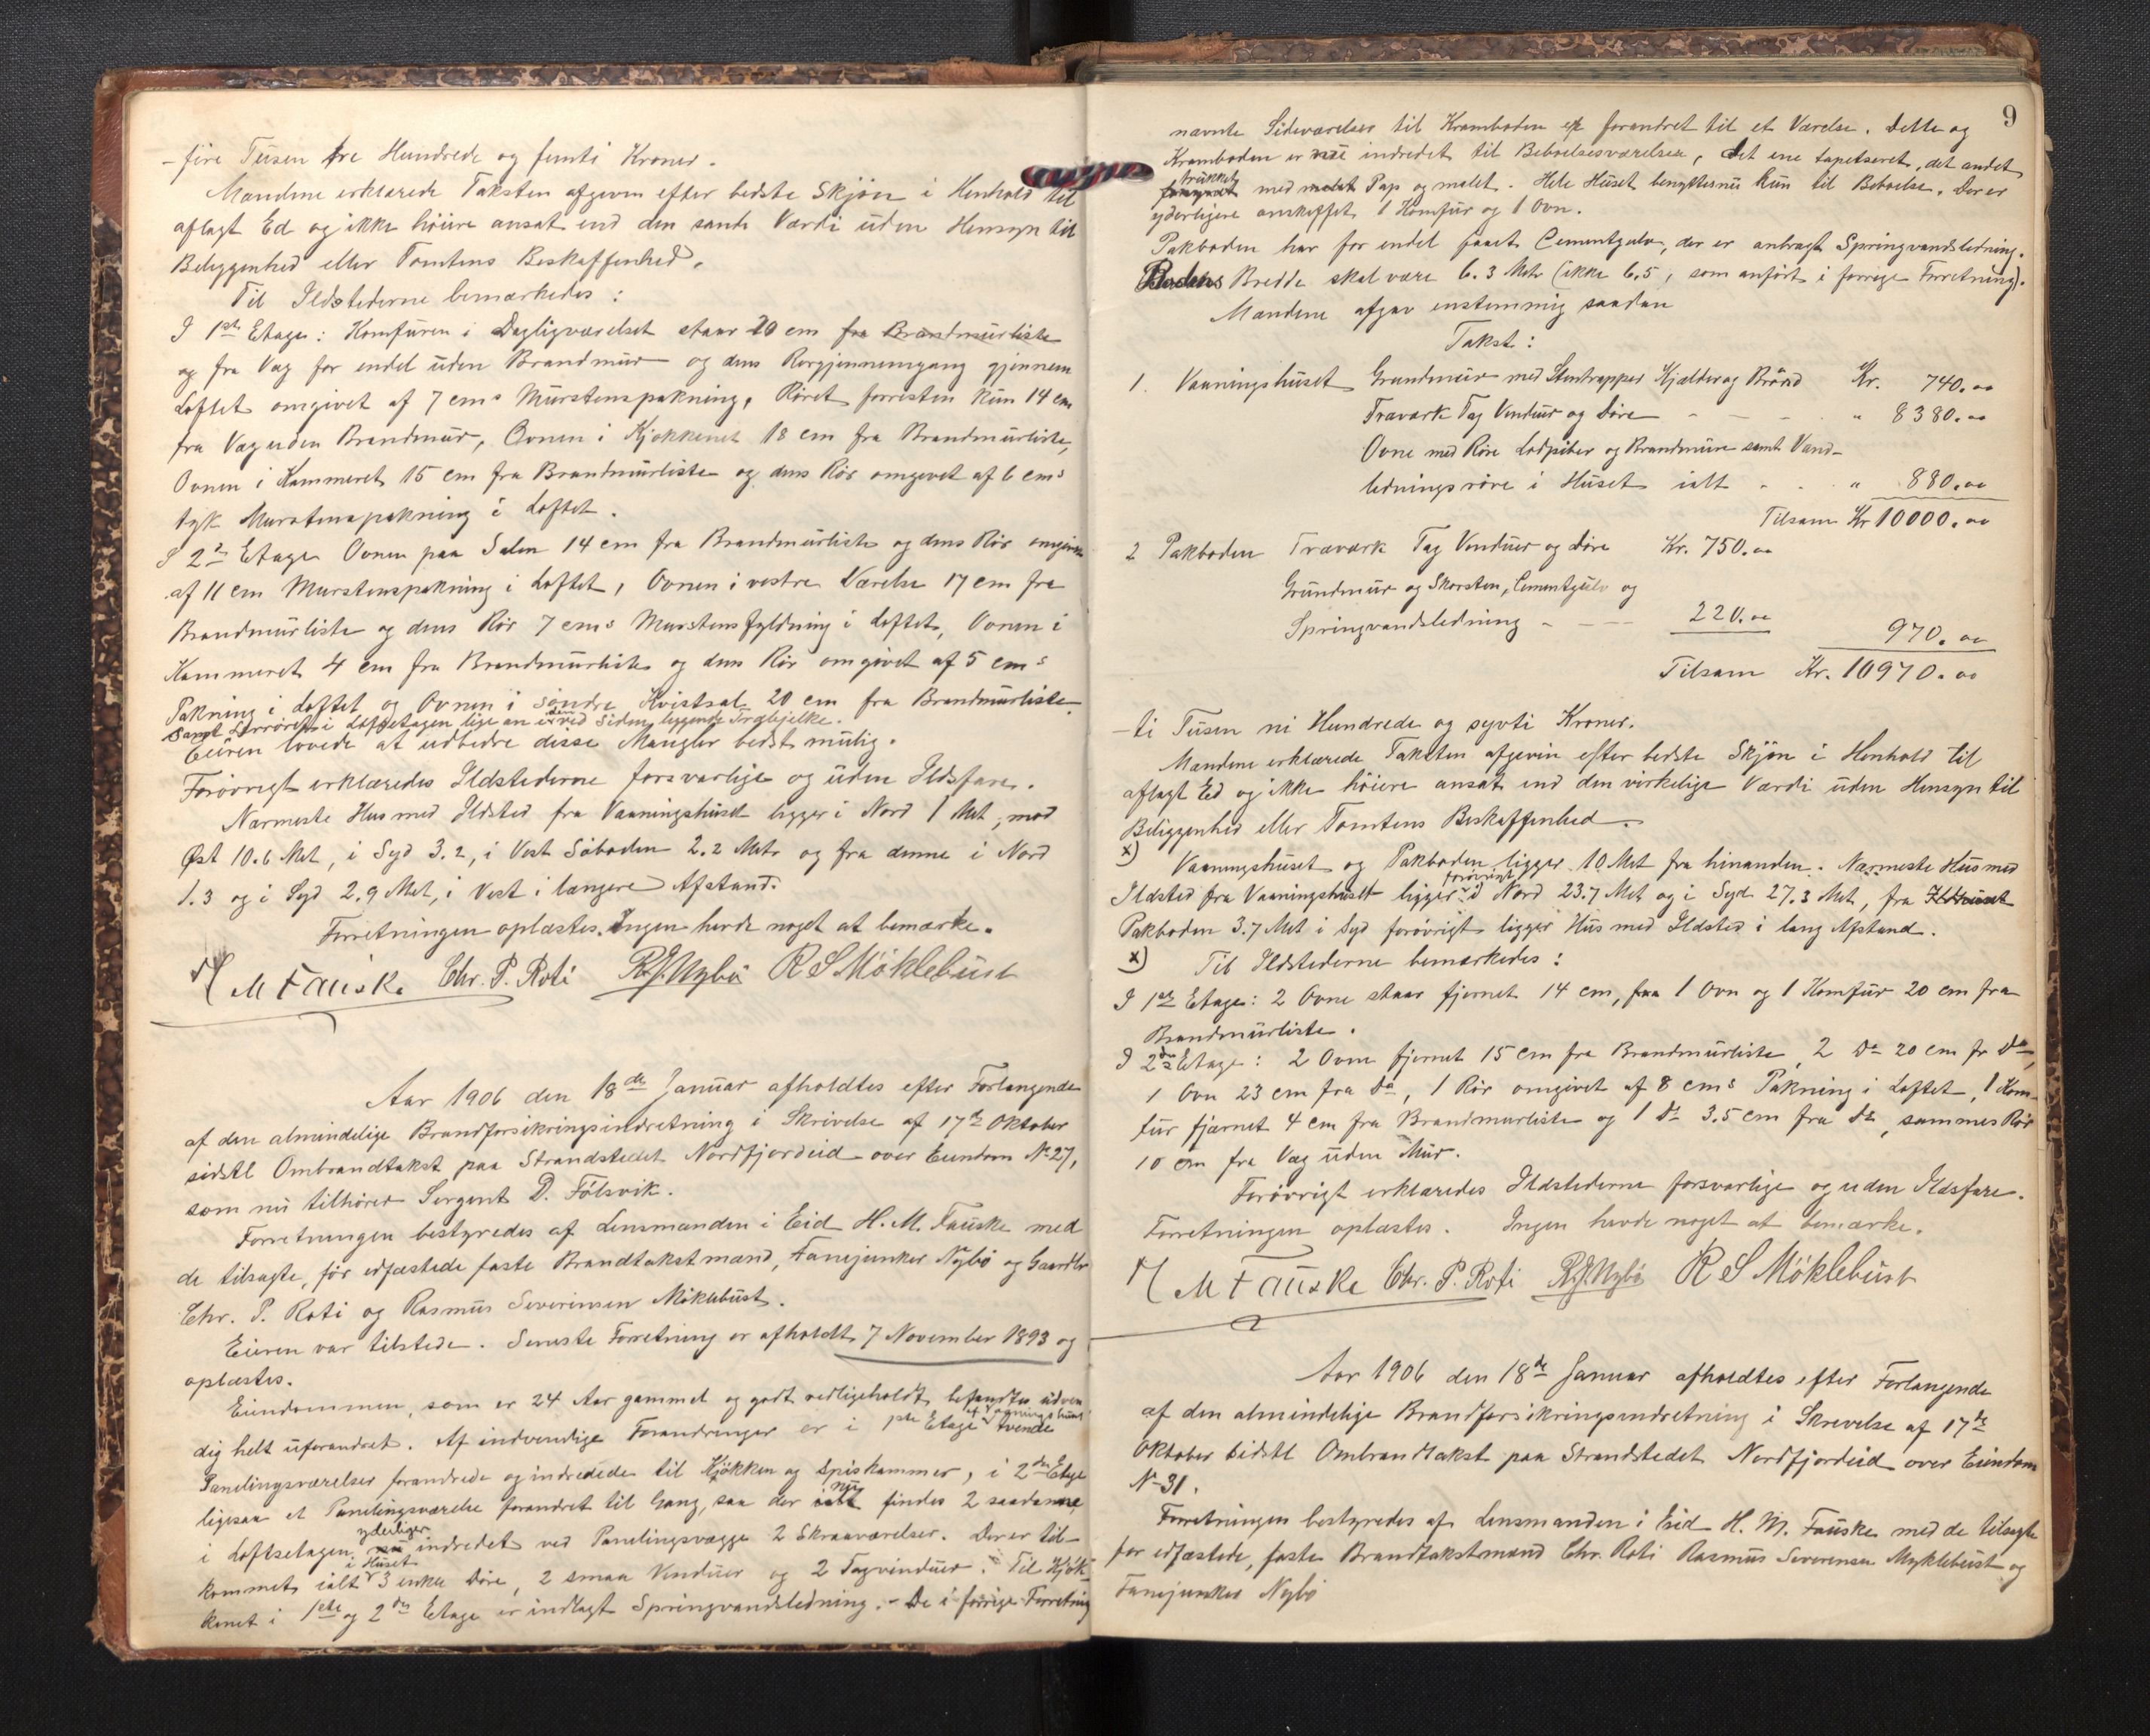 - fire Tusen tre Hundrede og femti Kroner.
Mændene erklærede Taksten afgiven efter bedste Skjøn i Henhold til
aflagt Ed og ikke høiere ansat end den sande Værdi uden Hensyn til
Beliggenhed eller Tomtens Beskaffenhed.
Til Ildstederne bemærkedes:
I 1ste Etage: Komfuren i Dagligværelset staar 20 cm fra Brandmurliste
og fra Væg for endel uden Brandmur og dens Rørgjennemgang gjennem
Loftet omgivet af 7 cms Murstenspakning, Røret forresten kun 14 cm
fra Væg uden Brandmur, Ovnen i Kjøkkenet 18 cm fra Brandmurliste,
Ovnen i Kammeret 15 cm fra Brandmurliste og dens Rør omgivet af 6 cms
tyk Murstenspakning i Loftet.
I 2den Etage Ovnen paa Salen 14 cm fra Brandmurliste og dens Rør omgivet
af 11 cm Murstenspakning i Loftet, Ovnen i vestre Værelse 17 cm fra
Brandmurliste og dens Rør 7 cms Murstensfyldning i Loftet, Ovnen i
Kammeret 4 cm fra Brandmurliste og dens Rør omgivet af 5 cms
Pakning i Loftet og Ovnen i søndre Kvistsal 20 cm fra Brandmurliste
samt i Loftsetagen lige an den ved Siden liggende Træbjelke.
Eieren lovede at udbedre disse Mangler bedst mulig.
Forøvrigt erklæredes Ildstederne forsvarlige og uden Ildsfare.
Nærmeste Hus med Ildsted fra Vaaningshuset ligger i Nord 1 Met, mod
Øst 10.6 Met, i Syd 3.2, i Vest Søboden 2.2 Metr og fra denne i Nord
1.3 og i Syd 2.9 Met, i Vest i længere Afstand.
Forretningen oplæstes. Ingen havde noget at bemærke.
H M Fauske Chr. P. Roti R.J. Nybø R S Møklebust
Aar 1906 den 18de Januar afholdtes efter Forlangende
af den almindelige Brandforsikringsindretning i Skrivelse af 17de Oktober
sidstl Ombrandtakst paa Strandstedet Nordfjordeid over Eiendom No 27,
som nu tilhører Sergent D. Følsvik.
Forretningen bestyredes af Lensmanden i Eid H. M. Fauske med
de tilsagte, før edfæstede faste Brandtakstmænd, Fanejunker Nybø og Gaardbr
Chr. P. Roti og Rasmus Severinsen Møklebust.
Eieren var tilstede. Seneste Forretning er afholdt 7 November 1893 og
oplæstes.
Eiendommen, som er 24 Aar gammel og godt vedligeholdt befandtes udven
dig helt uforandret. Af indvendige Forandringer er i 1ste Etage af Vaaningshuset tvende
Panelingsværelser forandrede og indredede til Kjøkken og Spiskammer, i 2den Etage
ligesaa et Panelingsværelse forandret til Gang, saa der nu findes 2 saadanne,
i Loftsetagen yderliger indredet ved Panelingsvægge 2 Skraaværelser. Der er til-
kommet ialt i Huset 3 enkle Døre, 2 smaa Vinduer og 2 Tagvinduer. Til Kjøk-
kenet i 1ste og 2den Etage er indlagt Springvandsledning. - De i forrige Forretning
9
nævnte Sideværelser til Kramboden er forandret til et Værelse. Dette og
Kramboden er nu indredet til Beboelsesværelser, det ene tapetseret, det andet
trukket med malet Pap og malet. Hele Huset benyttes nu kun til Beboelse. Der er
yderligere anskaffet 1 Komfur og 1 Ovn.
Pakboden har for endel faaet Cementgulv, der er anbragt Springvandsledning.
Bodens Bredde skal være 6.3 Metr (ikke 6.5, som anført i forrige Forretning).
Mændene afgav enstemmig saadan
Takst:
1. Vaaningshuset Grundmur med Stentrapper Kjælder og Brønd Kr. 740.00
Træværk Tag Vinduer og Døre - - - " 8380.00
Ovne med Røre Lodpiber og Brandmure samt Vand-
ledningsrøre i Huset ialt - - " 880.00
Tilsam Kr 10000.00
2 Pakboden Træværk Tag Vinduer og Døre Kr. 750.00
Grundmur og Skorsten, Cementgulv og
Springvandsledning - - - 220.00
970.00
Tilsam Kr. 10970.00
- ti Tusen ni Hundrede og sytti Kroner.
Mændene erklærede Taksten afgiven efter bedste Skjøn i Henhold til
aflagt Ed og ikke høiere ansat end den virkelige Værdi uden Hensyn til
Beliggenhed eller Tomtens Beskaffenhed.
x) Vaaningshuset og Pakboden ligger 10 Met fra hinanden. Nærmeste Hus med
Ildsted fra Vaaningshuset ligger forøvrigt i Nord 23.7 Met og i Syd 27.3 Met, fra
Pakboden 3.7 Met i Syd forøvrigt ligger Hus med Ildsted i lang Afstand.
x) Til Ildstederne bemærkedes:
I 1ste Etage: 2 Ovne staar fjernet 14 cm, 1 Ovn og 1 Komfur 20 cm fra
Brandmurliste.
I 2den Etage: 2 Ovne fjernet 15 cm fra Brandmurliste, 2 Do 20 cm fr Do,
1 Ovn 23 cm fra Do, 1 Rør omgivet af 8 cms Pakning i Loftet, 1 Kom-
fur fjærnet 4 cm fra Brandmurliste og 1 Do 3.5 cm fra Do, sammes Rør
10 cm fra Væg uden Mur.
Forøvrigt erklæredes Ildstederne forsvarlige og uden Ildsfare.
Forretningen oplæstes. Ingen havde noget at bemærke.
H M Fauske Chr. P. Roti R.J. Nybø R S Møklebust
Aar 1906 den 18de Januar afholdtes efter Forlangende
af den almindelige Brandforsikringsindretning i Skrivelse af 17de
Oktober sidstl Ombrandtakst paa Strandstedet Nordfjordeid over Eiendom
No 31.
Forretningen bestyredes af Lensmanden i Eid H. M. Fauske med de tilsagte
før edfæstede, faste Brandtakstmænd Chr. Roti Rasmus Severensen Myklebust og
Fanejunker Nybø